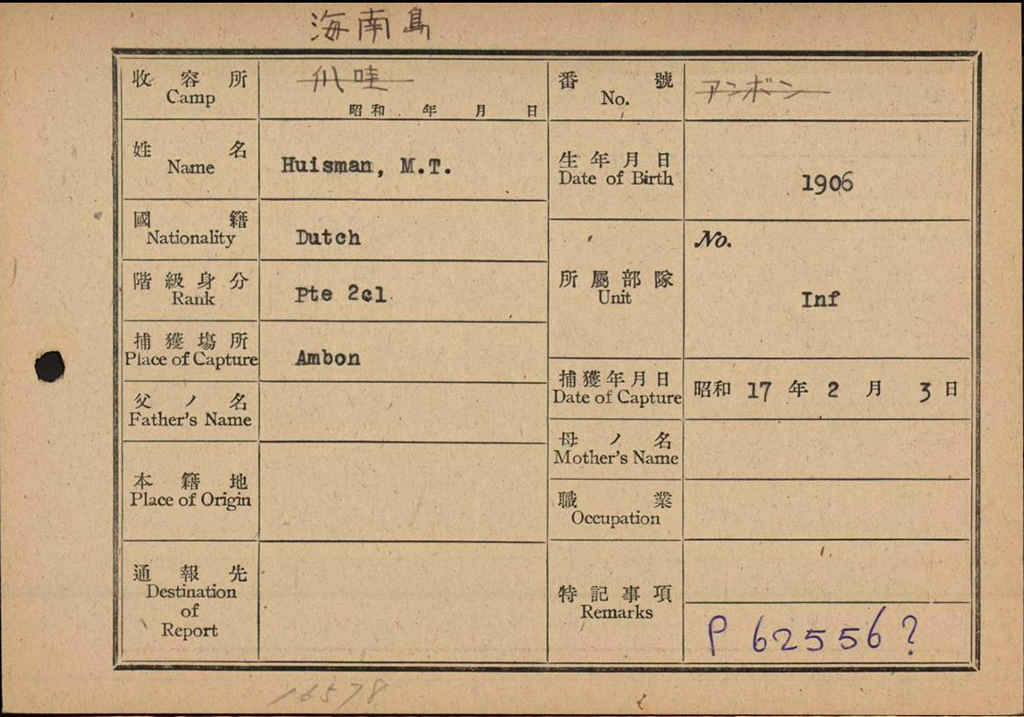 海南島
收容所
Camp
爪哇
昭和 年 月 日
番號
No.
アンボン
姓名
Name
Huisman, M.T.
生年月日
Date of Birth
1906
國籍
Nationality
Dutch
所屬部隊
Unit
No.
Inf
階級身分
Rank
Pte 2cl
捕獲場所
Place of Capture
Ambon
捕獲年月日
Date of Capture
昭和 17 年 2 月 3 日
父ノ名
Father's Name
母ノ名
Mother's Name
本籍地
Place of Origin
職業
Occupation
通報先
Destination
of
Report
特記事項
Remarks
P 62556?
16578